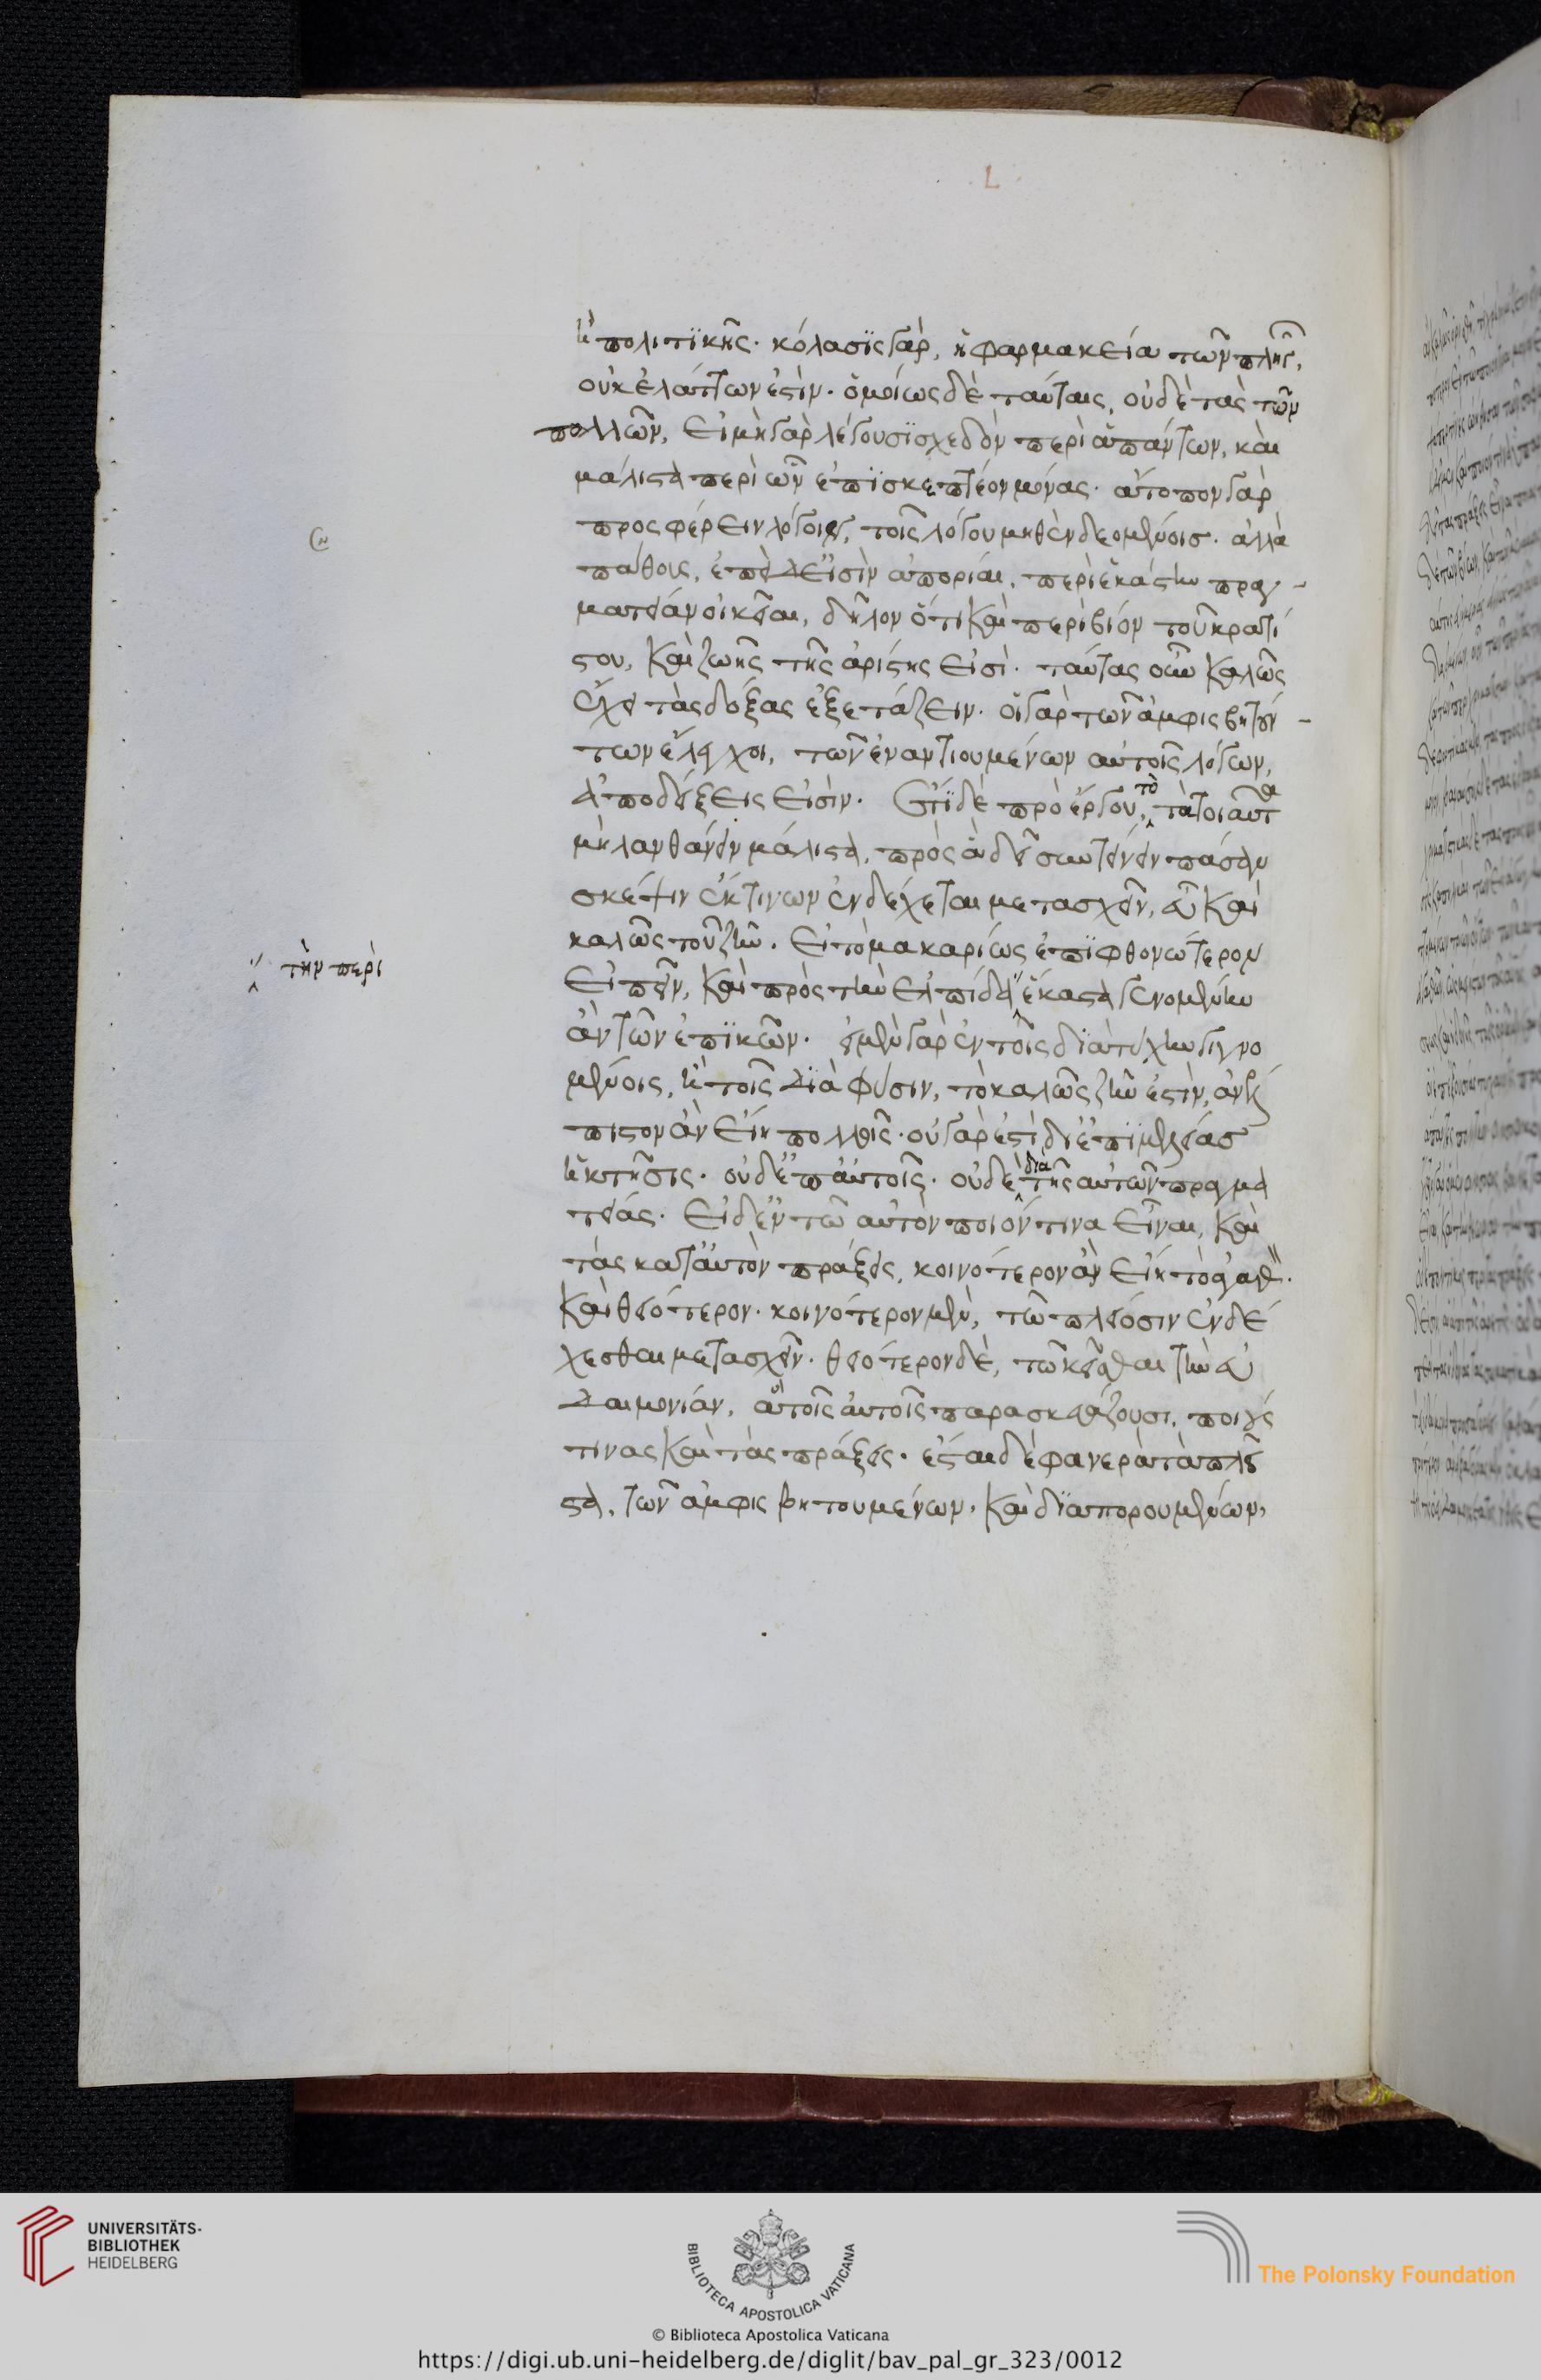 ἢ πολιτικῆς. κόλασις γὰρ, ἡ φαρμακεία τῶν πλης,
οὐκ ἐλάττων ἐστίν. ὁμοίως δὲ ταύταις, οὐδὲ τὰς τῶν
πολλῶν, εἰ μὴ γὰρ λέγουσι σχεδὸν περὶ ἁπάντων, καὶ
μάλιστα περὶ ὧν ἐπισκεπτέον μόνας. ἄτοπον γὰρ
προσφέρειν λόγοις, τοῖς λόγου μηθὲν δεομένοις. ἀλλὰ
πάθους, ἐπεὶ δ εἰσὶν ἀπορίαι, περὶ ἑκάστην πραγ-
ματείαν οἰκεῖαι, δῆλον ὅτι καὶ περὶ βίου τοῦ κρατί
στου, καὶ ζωῆς τῆς ἀρίστης εἰσί. ταύτας οὖν καλῶς
ἔχει τὰς δόξας ἐξετάζειν. οἱ γὰρ τῶν ἀμφισβητούν-
των ἔλεγχοι, τῶν ἐναντιουμένων αὐτοῖς λόγων,
ἀποδείξεις εἰσίν. ἔτι δὲ πρὸ ἔργου, τὸ τὰ τοιαῦτα
μὴ λανθάνειν μάλιστα, πρὸς ἃ δεῖ συντείνειν πᾶσαν
σκέψιν ἐκ τίνων ἐνδέχεται μετασχεῖν, εὖ καὶ
καλῶς τοῦ ζῆν. εἰ τὸ μακαρίως ἐπιφθονώτερον
εἰπεῖν, καὶ πρὸς τὴν ἐλπίδα ἕκαστα γενομένην
ἂν τῶν ἐπιεικῶν. εἰ μὲν γὰρ ἐν τοῖς διὰ τύχην γιγνο
μένοις, ἢ τοῖς διὰ φύσιν, τὸ καλῶς ζῆν ἐστὶν, ἀνέλ
πιστον ἂν εἴη πολλοῖς. οὐ γάρ ἐστι δι ἐπιμελείας
ἡ κτῆσις. οὐδὲ ἐπ αὐτοῖς. οὐδὲ διὰ τῆς αὐτῶν πραγμα
τείας. εἰ δ ἐν τῶ αὐτὸν ποιόν τινα εἶναι, καὶ
τὰς κατ αὐτὸν πράξεις, κοινότερον ἂν εἴη τὸ ἀγαθ.
καὶ θειότερον. κοινότερον μὲν, τῶ πλείοσιν ἐνδέ
χεσθαι μετασχεῖν. θειότερον δὲ, τῶ κεῖσθαι τὴν εὐ
δαιμονίαν, αὐτοῖς αὑτοῖς παρασκευάζουσι, ποιούς
τινας καὶ τὰς πράξεις. ἔσται δὲ φανερὰ τὰ πλεῖ
στα, τῶν ἀμφισβητουμένων, καὶ διαπορουμένων,
τὴν περὶ
UNIVERSITÄTS-
BIBLIOTHEK
HEIDELBERG
BIBLIOTECA APOSTOLICA VATICANA
The Polonsky Foundation
© Biblioteca Apostolica Vaticana
https://digi.ub.uni-heidelberg.de/diglit/bav_pal_gr_323/0012